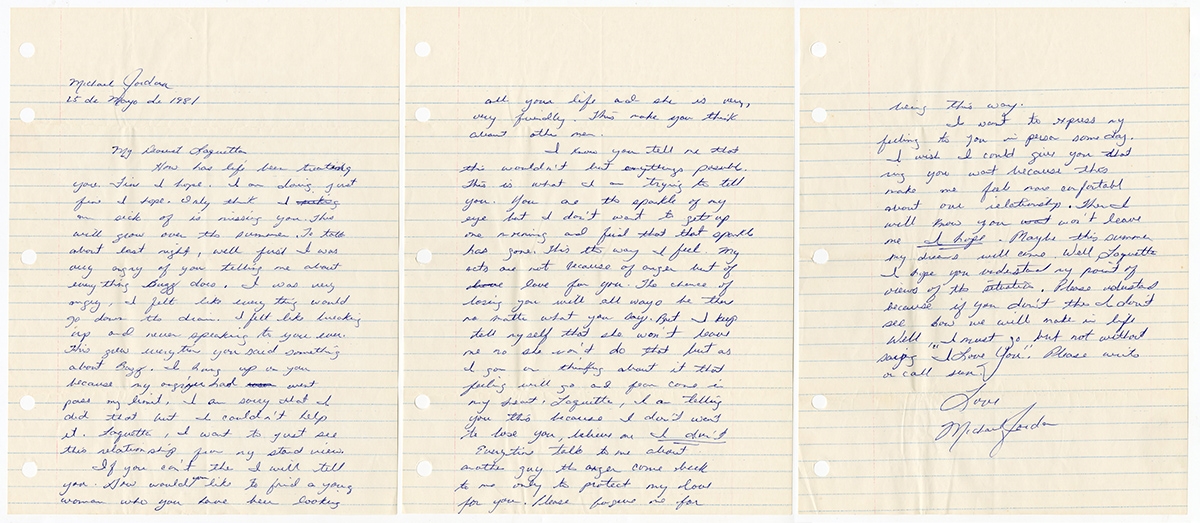 Michael Jordan
25 de Mayo de 1981
My Dearest Laquetta
How has life been treating
you. Fine I hope. I am doing just
fine I hope. Only think I
am sick of is missing you. This
will grow over the summer. To talk
about last night, well first I was
very angry of you telling me about
everything Buzz does. I was very
angry, I felt like everything would
go down the drain. I felt like breaking
up and never speaking to you ever.
This grew everytime you said something
about Buzz. I hung up on you
because my anger had went
pass my limit, I am sorry that I
did that but I couldn't help
it. Laquetta, I want to just see
this relationship from my stand view.
If you can't the I will tell
you. How would you like to find a young
woman who you have been looking
all your life and she is very,
very friendly. This make you think
about other men.
I know you tell me that
this wouldn't but anythings possible.
This is what I am trying to tell
you. You are the sparkle of my
eye but I don't want to get up
one morning and find that that sparkle
has gone. This the way I feel. My
acts are not because of anger but of
love for you. The chance of
losing you will all ways be there
no matter what you say. But I keep
tell myself that she won't leave
me no she won't do that but as
I go on thinking about it that
feeling will go and fear come in
my heart. Laquetta, I am telling
you this because I don't want
to lose you, believe me I don't
Everytime talk to me about
another guy the anger come back
to me only to protect my love
for you. Please forgive me for
being this way.
I want to express my
feeling to you in person some day.
I wish I could give you that
ring you want because this
make me feel more confortable
about our relationship. Then I
will know you won't leave
me I hope. Maybe this summer
my dreams will come. Well Laquetta
I hope you understand my point of
views of this situation. Please understand
because if you don't the I don't
see how we will make in life
Well "I must go but not without
saying "I Love You". Please write
or call soon.
Love
Michael Jordan